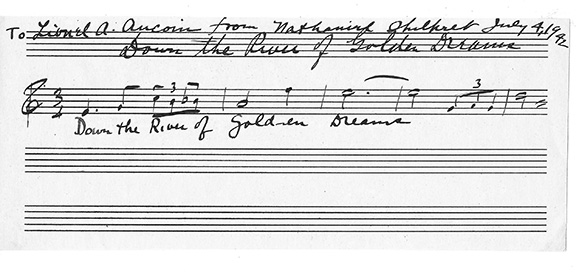 To Lionel A. Aucoin from Nathaniel Shilkret July 4, 1942
Down the River of Golden Dreams
3
3
3
4
Down the River of Gold-en Dreams